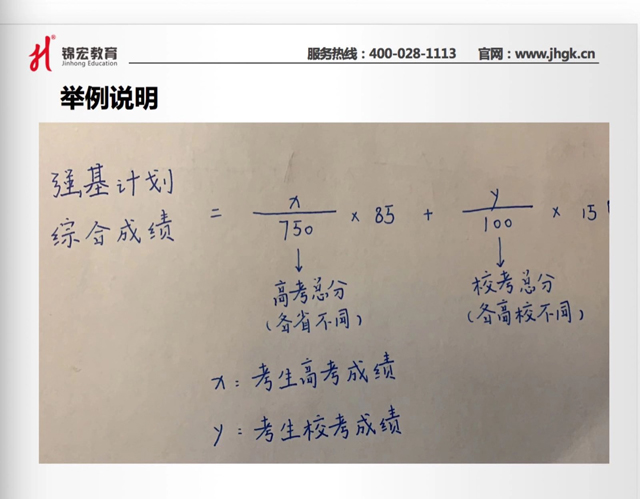 锦宏教育
Jinhong Education
服务热线：400-028-1113 官网：www.jhgk.cn
举例说明
强基计划
综合成绩 = x/750 × 85 + y/100 × 15
↓ ↓
高考总分 校考总分
(各省不同) (各高校不同)
x：考生高考成绩
y：考生校考成绩